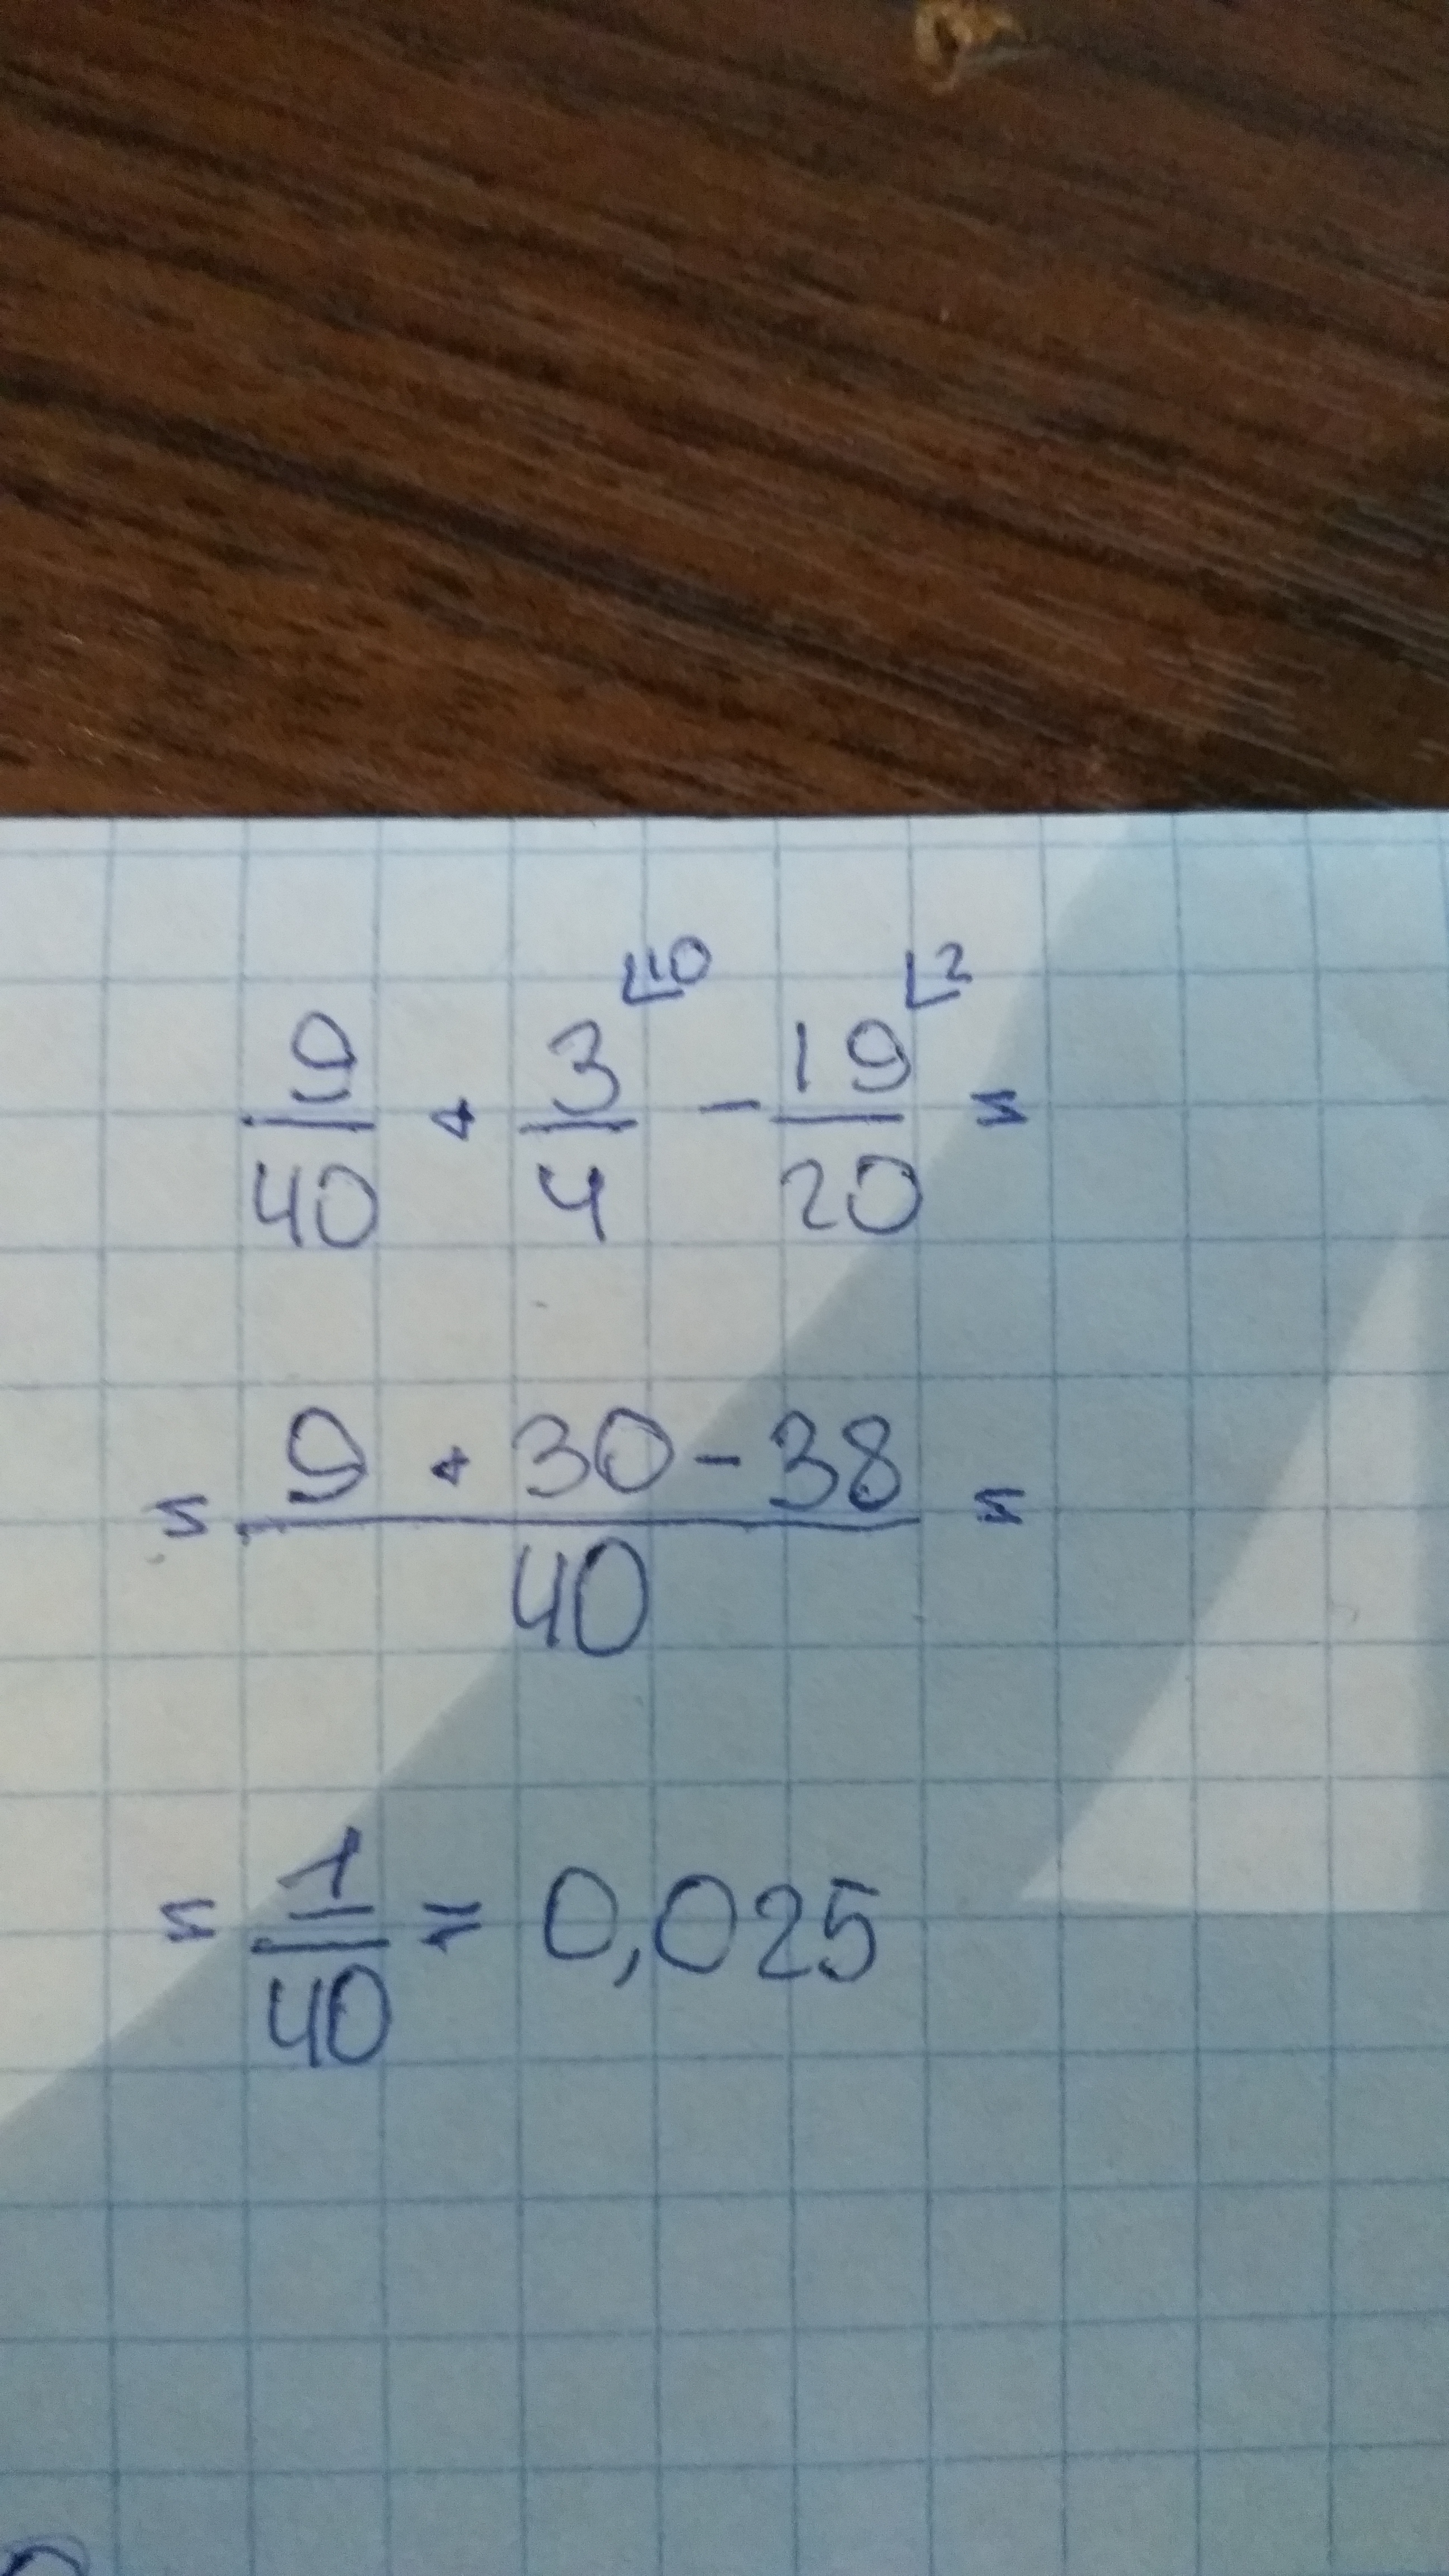 9/40 + 3/4 ⌊10 - 19/20 ⌊2 =
= (9 + 30 - 38)/40 =
= 1/40 = 0,025